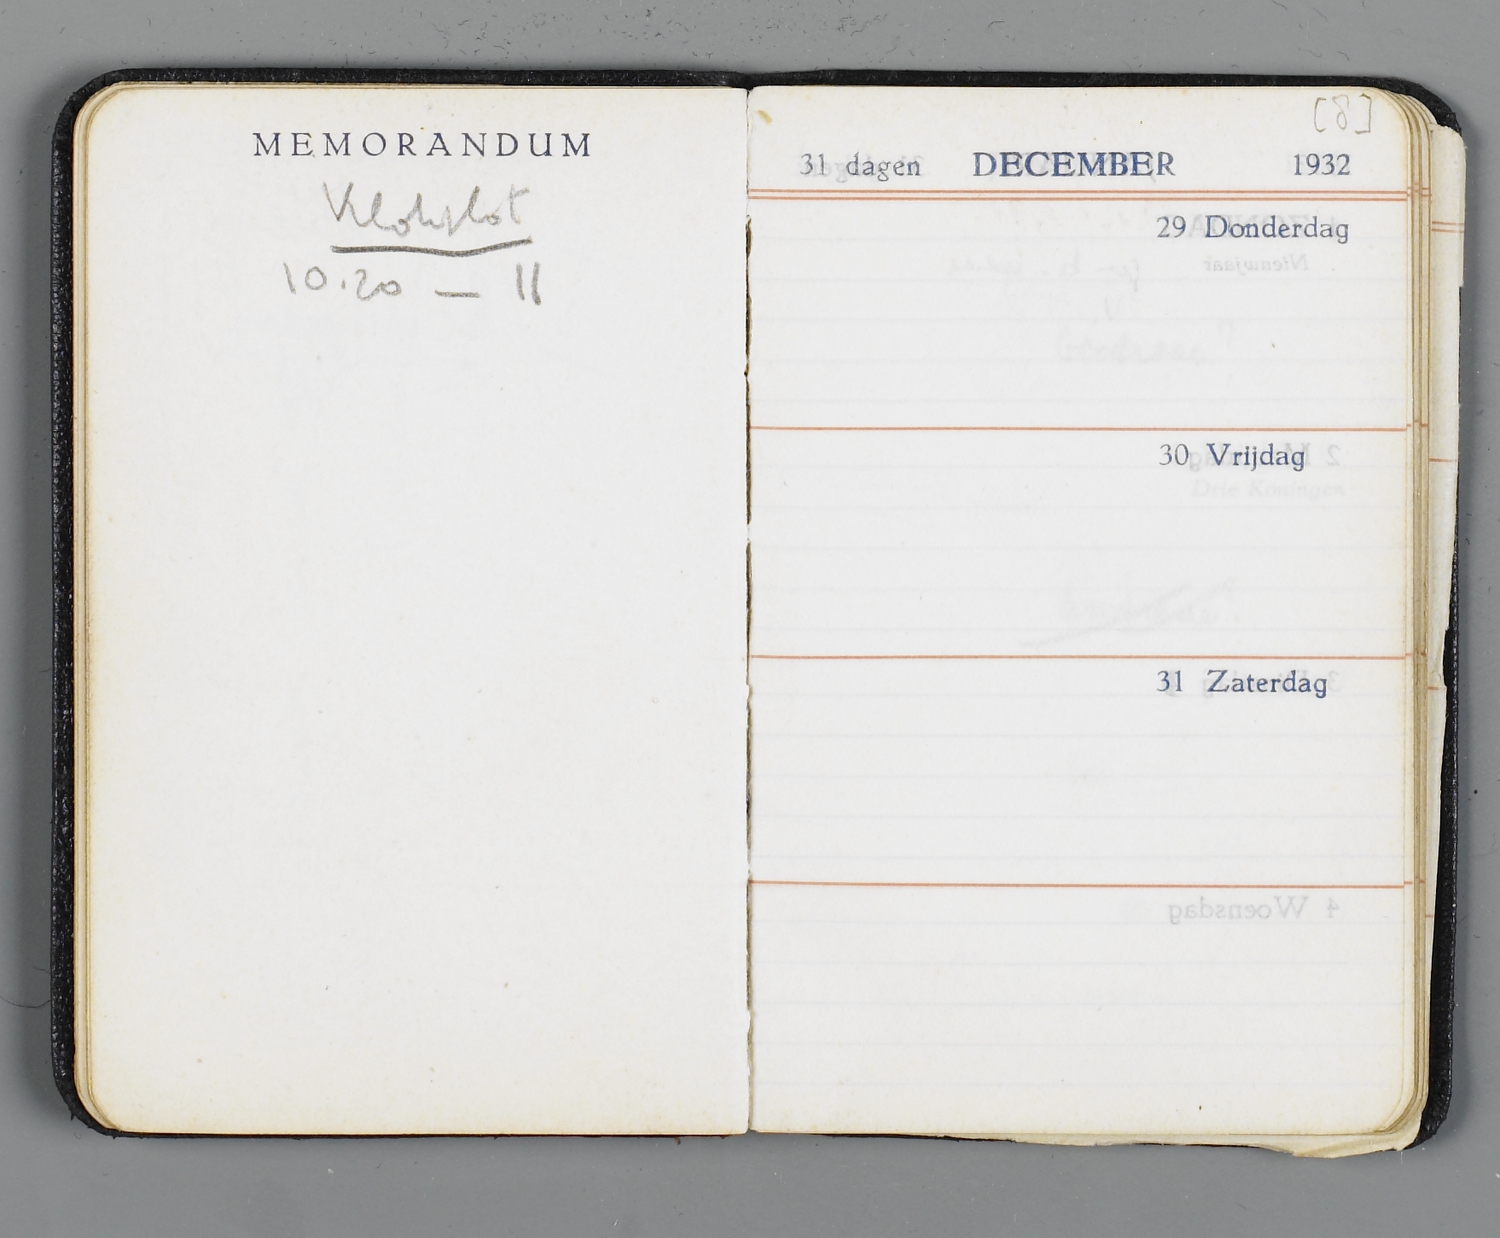 MEMORANDUM
10.20 — 11
[8]
31 dagen DECEMBER 1932
29 Donderdag
30 Vrijdag
31 Zaterdag